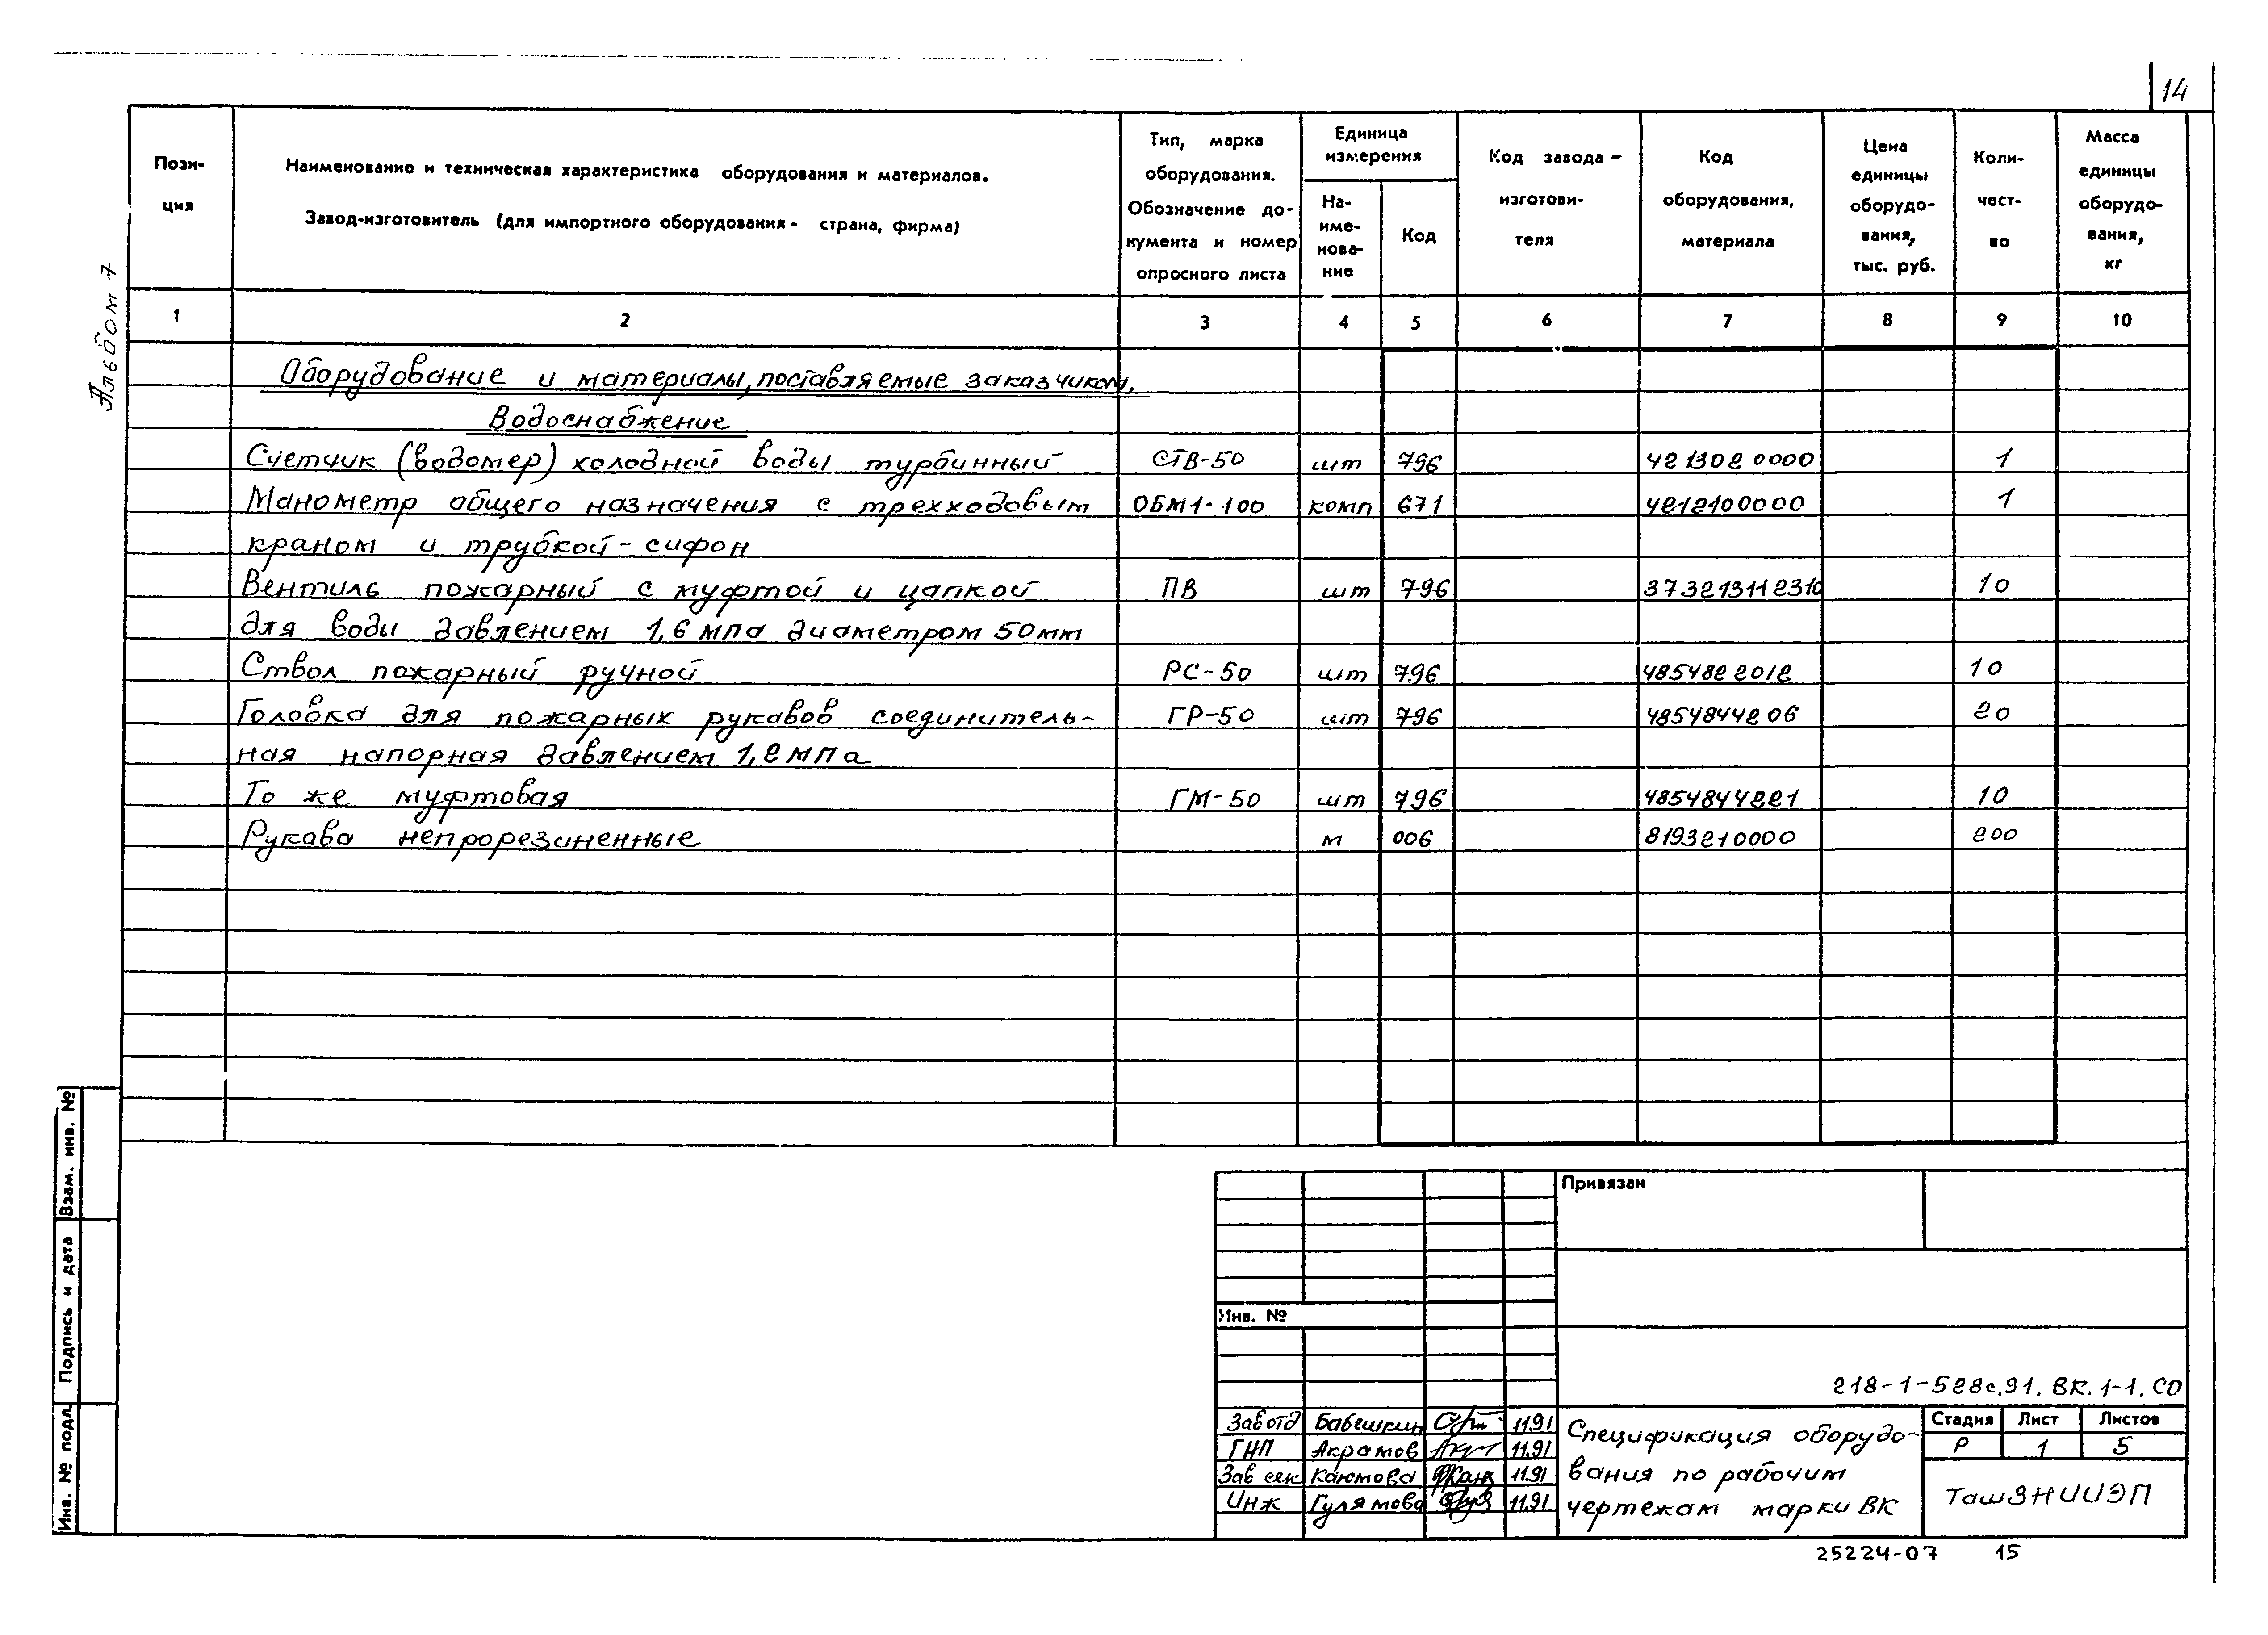 14
Альбом 7
Пози-
ция
Наименование и техническая характеристика оборудования и материалов.
Завод-изготовитель (для импортного оборудования - страна, фирма)
Тип, марка
оборудования.
Обозначение до-
кумента и номер
опросного листа
Единица
измерения
На-
име-
нова-
ние
Код
Код завода -
изготови-
теля
Код
оборудования,
материала
Цена
единицы
оборудо-
вания,
тыс. руб.
Коли-
чест-
во
Масса
единицы
оборудо-
вания,
кг
1 2 3 4 5 6 7 8 9 10
Оборудование и материалы, поставляемые заказчиком.
Водоснабжение
Счетчик (водомер) холодной воды турбинный СТВ-50 шт 796 4213020000 1
Манометр общего назначения с трехходовым ОБМ1-100 комп 671 4212100000 1
краном и трубкой-сифон
Вентиль пожарный с муфтой и цапкой ПВ шт 796 373213112310 10
для воды давлением 1,6 мпа диаметром 50мм
Ствол пожарный ручной РС-50 шт 796 4854822012 10
Головка для пожарных рукавов соединитель- ГР-50 шт 796 4854844206 20
ная напорная давлением 1,2 МПа
То же муфтовая ГМ-50 шт 796 4854844221 10
Рукава непрорезиненные м 006 8193210000 200
Взам. инв. №
Подпись и дата
Инв. № подл.
Привязан
Инв. №
218-1-528с.91. ВК.1-1. СО
Зав отд Бабешкин 11.91
ГИП Акрамов 11.91
Зав сек Каюмова 11.91
Инж Гулямова 11.91
Спецификация оборудо-
вания по рабочим
чертежам марки ВК
Стадия Лист Листов
Р 1 5
ТашЗНИИЭП
25224-07 15